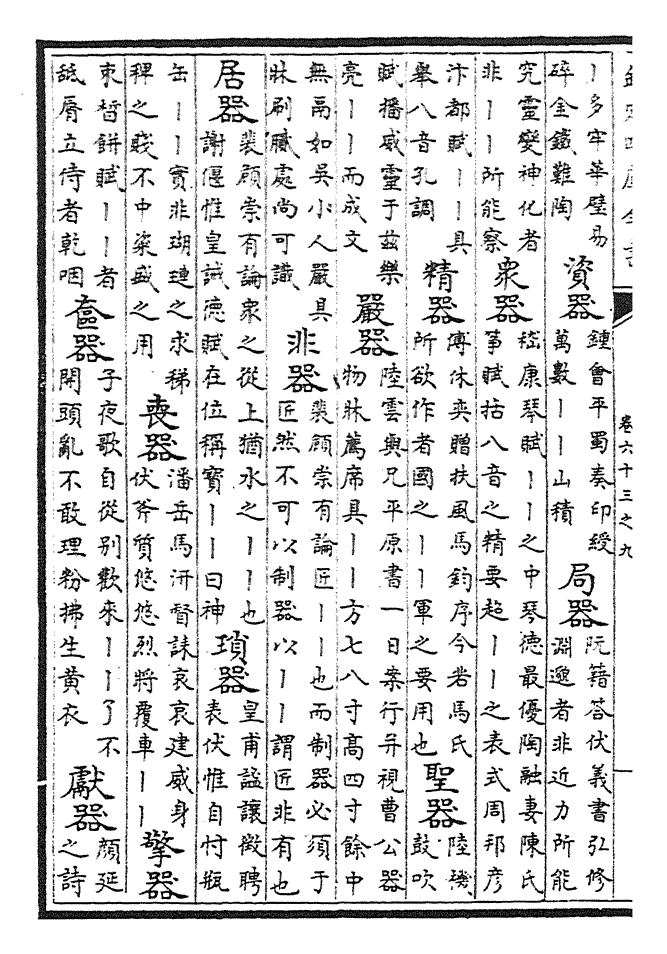 欽定四庫全書
卷六十三之九
丨多牢華璧易
碎金鐵難陶
資器
鍾會平蜀奏印綬
萬數丨丨山積
局器
阮籍答伏義書弘修
淵邈者非近力所能
究靈變神化者
非丨丨所能察
衆器
嵇康琴賦丨丨之中琴德最優陶融妻陳氏
箏賦括八音之精要超丨丨之表式周邦彥
汴都賦丨丨具
舉八音孔調
精器
傅休奕贈扶風馬鈞序今若馬氏
所欲作者國之丨丨軍之要用也
聖器
陸機
鼓吹
賦播威靈于兹樂
亮丨丨而成文
嚴器
陸雲與兄平原書一日案行并視曹公器
物牀薦席具丨丨方七八寸高四寸餘中
無鬲如吳小人嚴具
牀刷膩處尚可識
非器
裴頠崇有論匠丨丨也而制器必須于
匠然不可以制器以丨丨謂匠非有也
居器
裴頠崇有論衆之從上猶水之丨丨也
謝偃惟皇誡德賦在位稱寶丨丨曰神
瑣器
皇甫謐讓徵聘
表伏惟自忖瓶
缶丨丨實非瑚璉之求稊
稗之賤不中粢盛之用
喪器
潘岳馬汧督誄哀哀建威身
伏斧質悠悠烈將覆車丨丨
擎器
束晳餅賦丨丨者
舐脣立侍者乾咽
奩器
子夜歌自從别歡來丨丨了不
開頭亂不敢理粉拂生黄衣
獻器
顔延
之詩